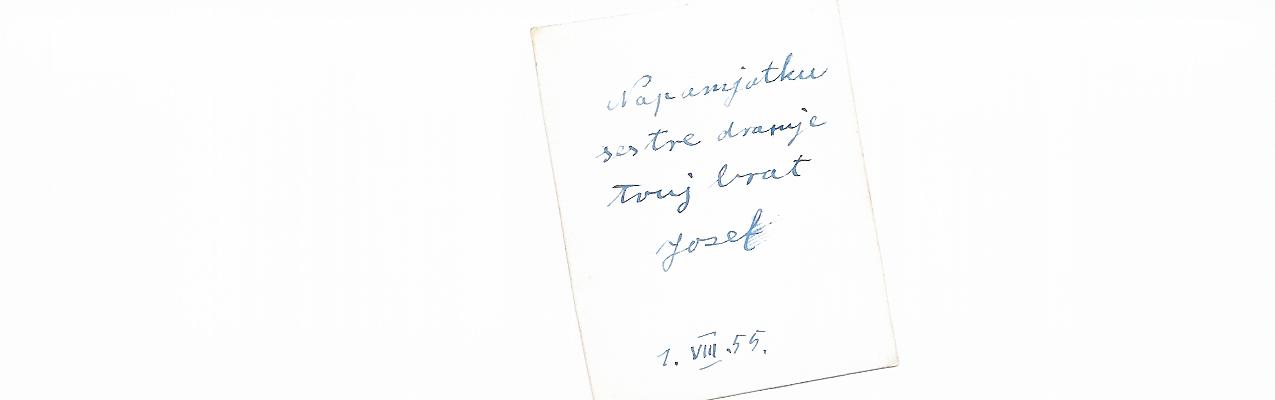 Napamjatku
sestre dranje
tvuj brat
Josef
1. VIII. 55.